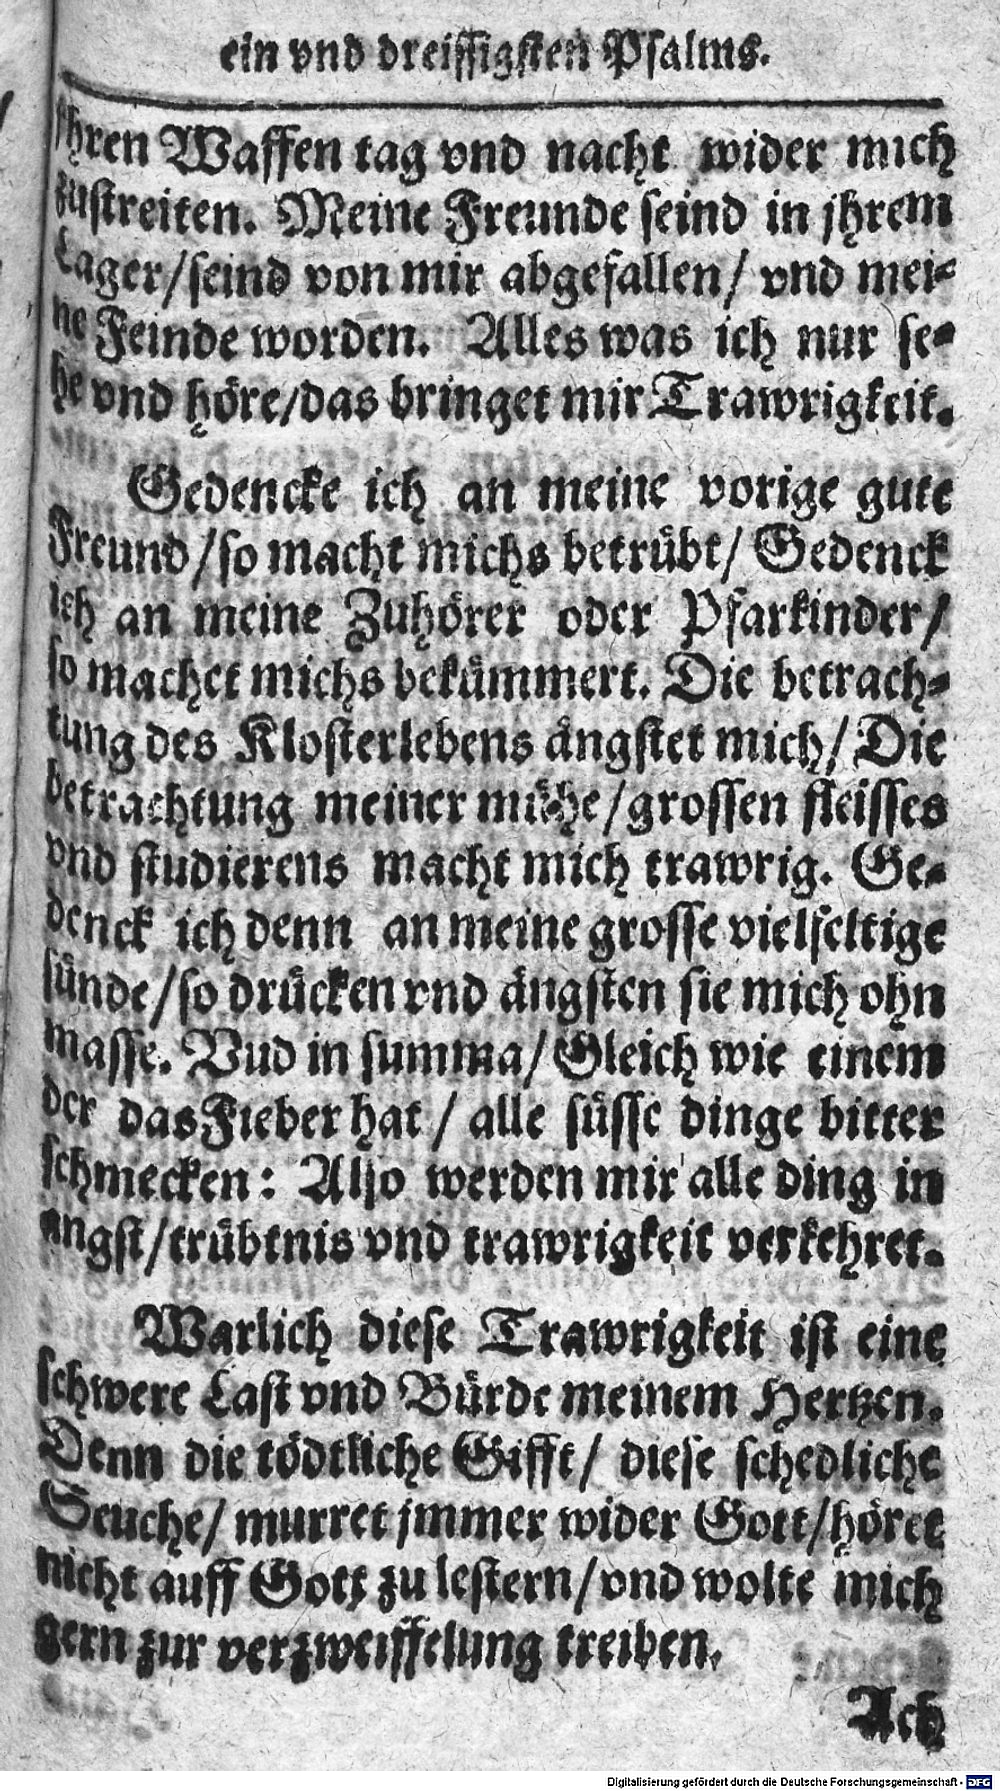 ein vnd dreiſſigſten Pſalms.
jhren Waffen tag vnd nacht wider mich
zuſtreiten. Meine Freunde ſeind in jhrem
Lager/ſeind von mir abgefallen/ vnd mei-
ne Feinde worden. Alles was ich nur ſe-
he vnd höre/das bringet mir Trawrigkeit.
Gedencke ich an meine vorige gute
Freund/ſo macht michs betrübt/ Gedenck
ich an meine Zuhörer oder Pfarkinder/
ſo machet michs bekümmert. Die betrach-
tung des Kloſterlebens ängſtet mich/ Die
betrachtung meiner mühe/groſſen fleiſſes
vnd ſtudierens macht mich trawrig. Ge-
denck ich denn an meine groſſe vielfeltige
ſünde/ſo drücken vnd ängſten ſie mich ohn
maſſe. Vud in ſumma/ Gleich wie einem
der das Fieber hat / alle ſüſſe dinge bitter
ſchmecken: Alſo werden mir alle ding in
angſt/trübtnis vnd trawrigkeit verkehret.
Warlich dieſe Trawrigkeit iſt eine
ſchwere Laſt vnd Bürde meinem Hertzen.
Denn die tödtliche Gifft/ dieſe ſchedliche
Seuche/ murret jmmer wider Gott/höret
nicht auff Gott zu leſtern/vnd wolte mich
gern zur verzweiffelung treiben.
Ach
Digitalisierung gefördert durch die Deutsche Forschungsgemeinschaft - DFG